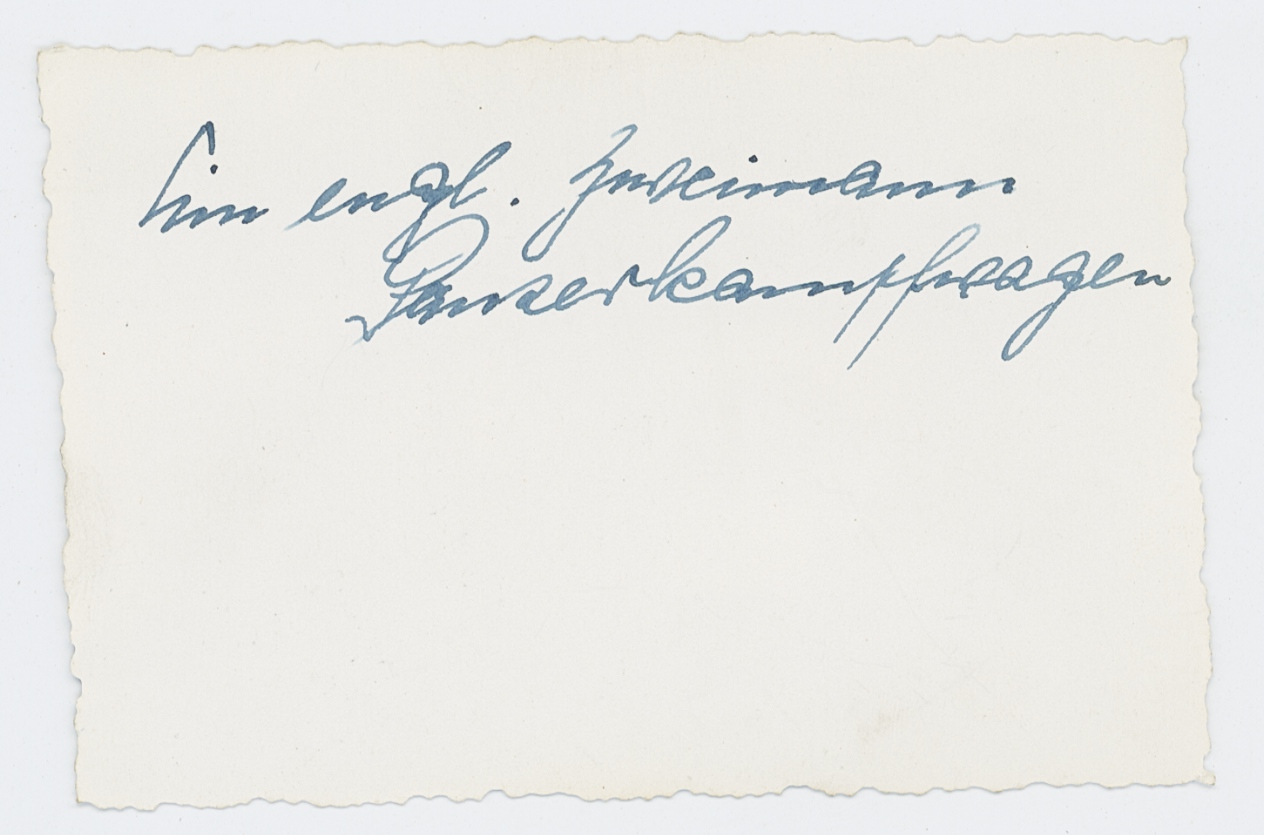 Ein engl. zweimann
Panzerkampfwagen